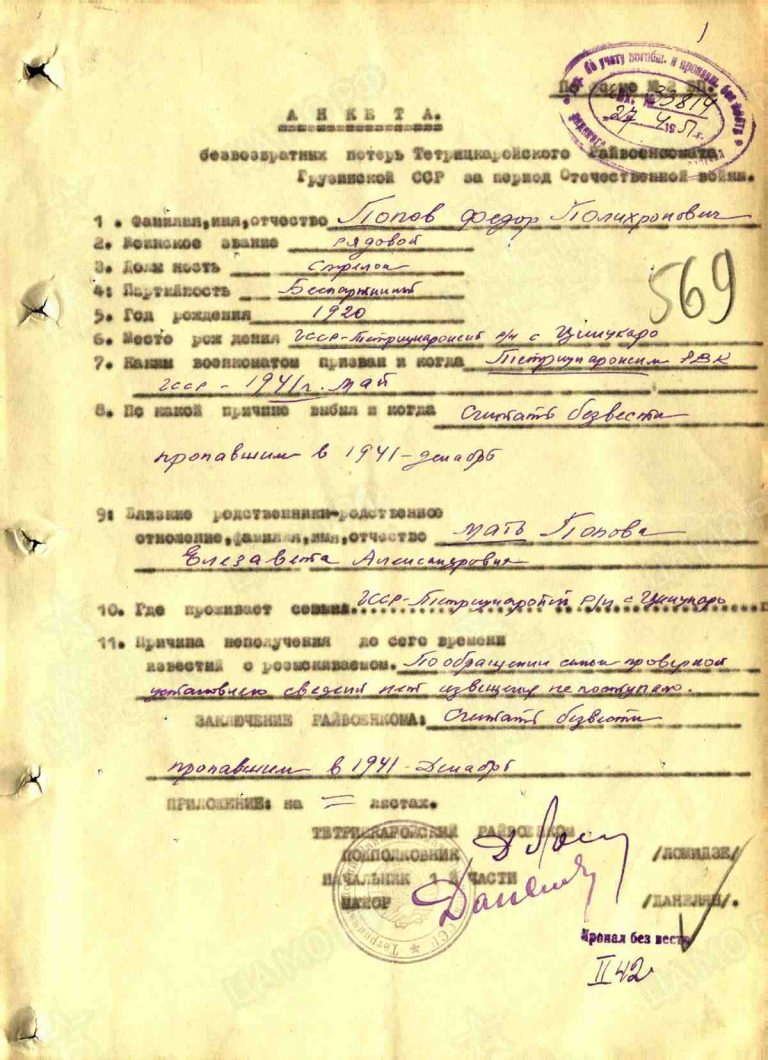 1
По форме № 2 БП.
по учету погибш. и пропавш. без вести
Вх. № 33814
"27" 4 1951 г.
А Н К Е Т А.
безвозвратных потерь Тетрицкаройского Райвоенкомата
Грузинской ССР за период Отечественной войны.
1. Фамилия,имя,отчество Попов Федор Полихронович
2. Воинское звание рядовой
3. Должность стрелок
4: Партийность Беспартийный
569
5. Год рождения 1920
6. Место рождения ГССР-Тетрицкаройский р/н с Цинцкаро
7. Каким военкоматом призван и когда Тетрицкаройским РВК
ГССР - 1941 г. май
8. По какой причине выбыл и когда Считать безвести
пропавшим в 1941-декабрь
9: Близкие родственники-родственное
отношение,фамилия,имя,отчество мать Попова
Елезавета Александровна
10. Где проживает семья ГССР-Тетрицкаройский р/н с Цинцкаро
11. Причина неполучения до сего времени
известий о розыскиваемом. По обращении семьи проверкой
установлено сведений нет извещения не поступало.
ЗАКЛЮЧЕНИЕ РАЙВОЕНКОМА: Считать безвести
пропавшим в 1941-Декабрь
ПРИЛОЖЕНИЕ: на = листах.
ТЕТРИЦКАРОЙСКИЙ РАЙВОЕНКОМ
ПОДПОЛКОВНИК /ЛОМИДЗЕ/
НАЧАЛЬНИК 1-й ЧАСТИ
МАЙОР Данелян /ДАНЕЛЯН/.
Пропал без вести
II 42